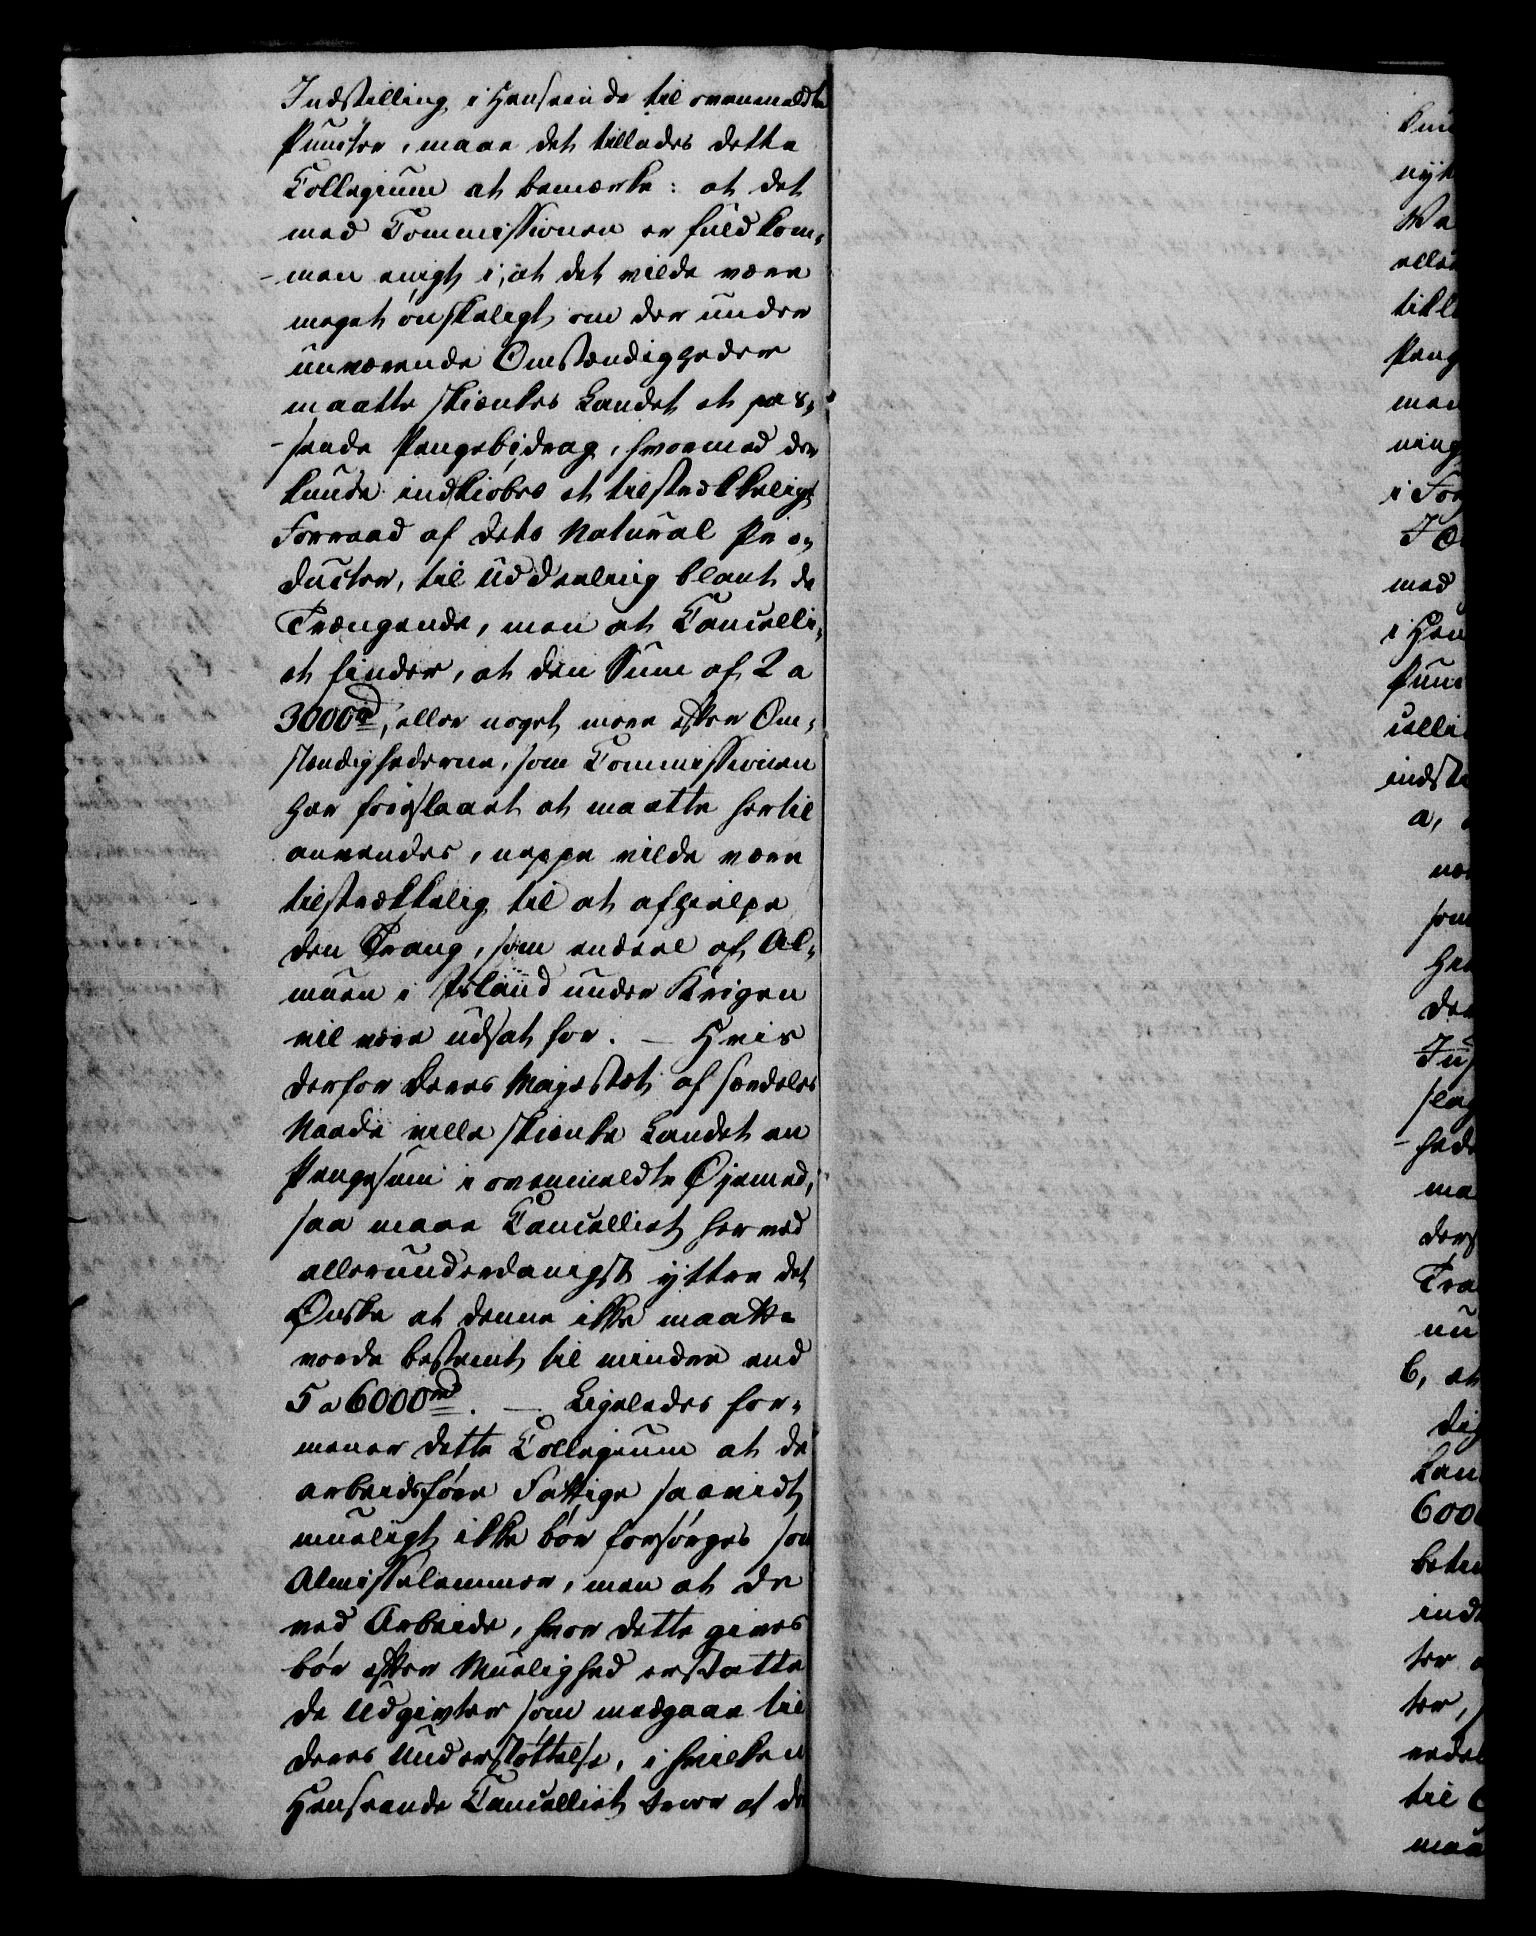 Indstilling i Henseende til ovenmeldte
Puncter, maae det tillades dette
Collegium at bemærke: at det
med Commissionen er fuldkom-
-men enigt i, at det vilde være
meget ønskeligt om der under
nuværende Omstændigheder
maatte skienkes Landet et pas-
-sende Pengebidrag, hvormed der
kunde indkiøbes et tilstrækkeligt
Forraad af dets Natural Pro-
ducter, til Uddeeling blant de
Trængende, men at Cancelli-
et finder, at den Sum af 2 a
3000rd, eller noget mere efter Om-
stændighederne, som Commissionen
har foreslaaet at maatte hertil
anvendes, neppe vilde være
tilstrækkelig til at afhielpe
den Trang, som endeel af Al-
muen i Island under Krigen
vil være udsat for. – Hvis
derfor Deres Majestæt af særdeles
Naade ville skienke Landet en
Pengesum i ovenmeldte Øjemed,
saa maae Cancelliet herved
allerunderdanigst yttre det
Ønske at denne ikke maatte
vorde bestemt til mindre end
5 a 6000rd. – Ligeledes for-
mener dette Collegium at de
arbeidsføre Fattige saavidt
mueligt ikke bør forsørges som
Almisselemmer, men at de
ved Arbeide, hvor dette gives
bør efter Muelighed erstatte
de Udgivter som medgaae til
deres Understøttelse, i hvilken
Henseende Cancelliet troer at de
nyt
Pung
men
ning
i For
med
i Hen
Punc
cellie
indsti
a,
som
den
hede
ma
ders
Tra
nu
b, at
Lan
600
ind
ter
ter,
til
maa